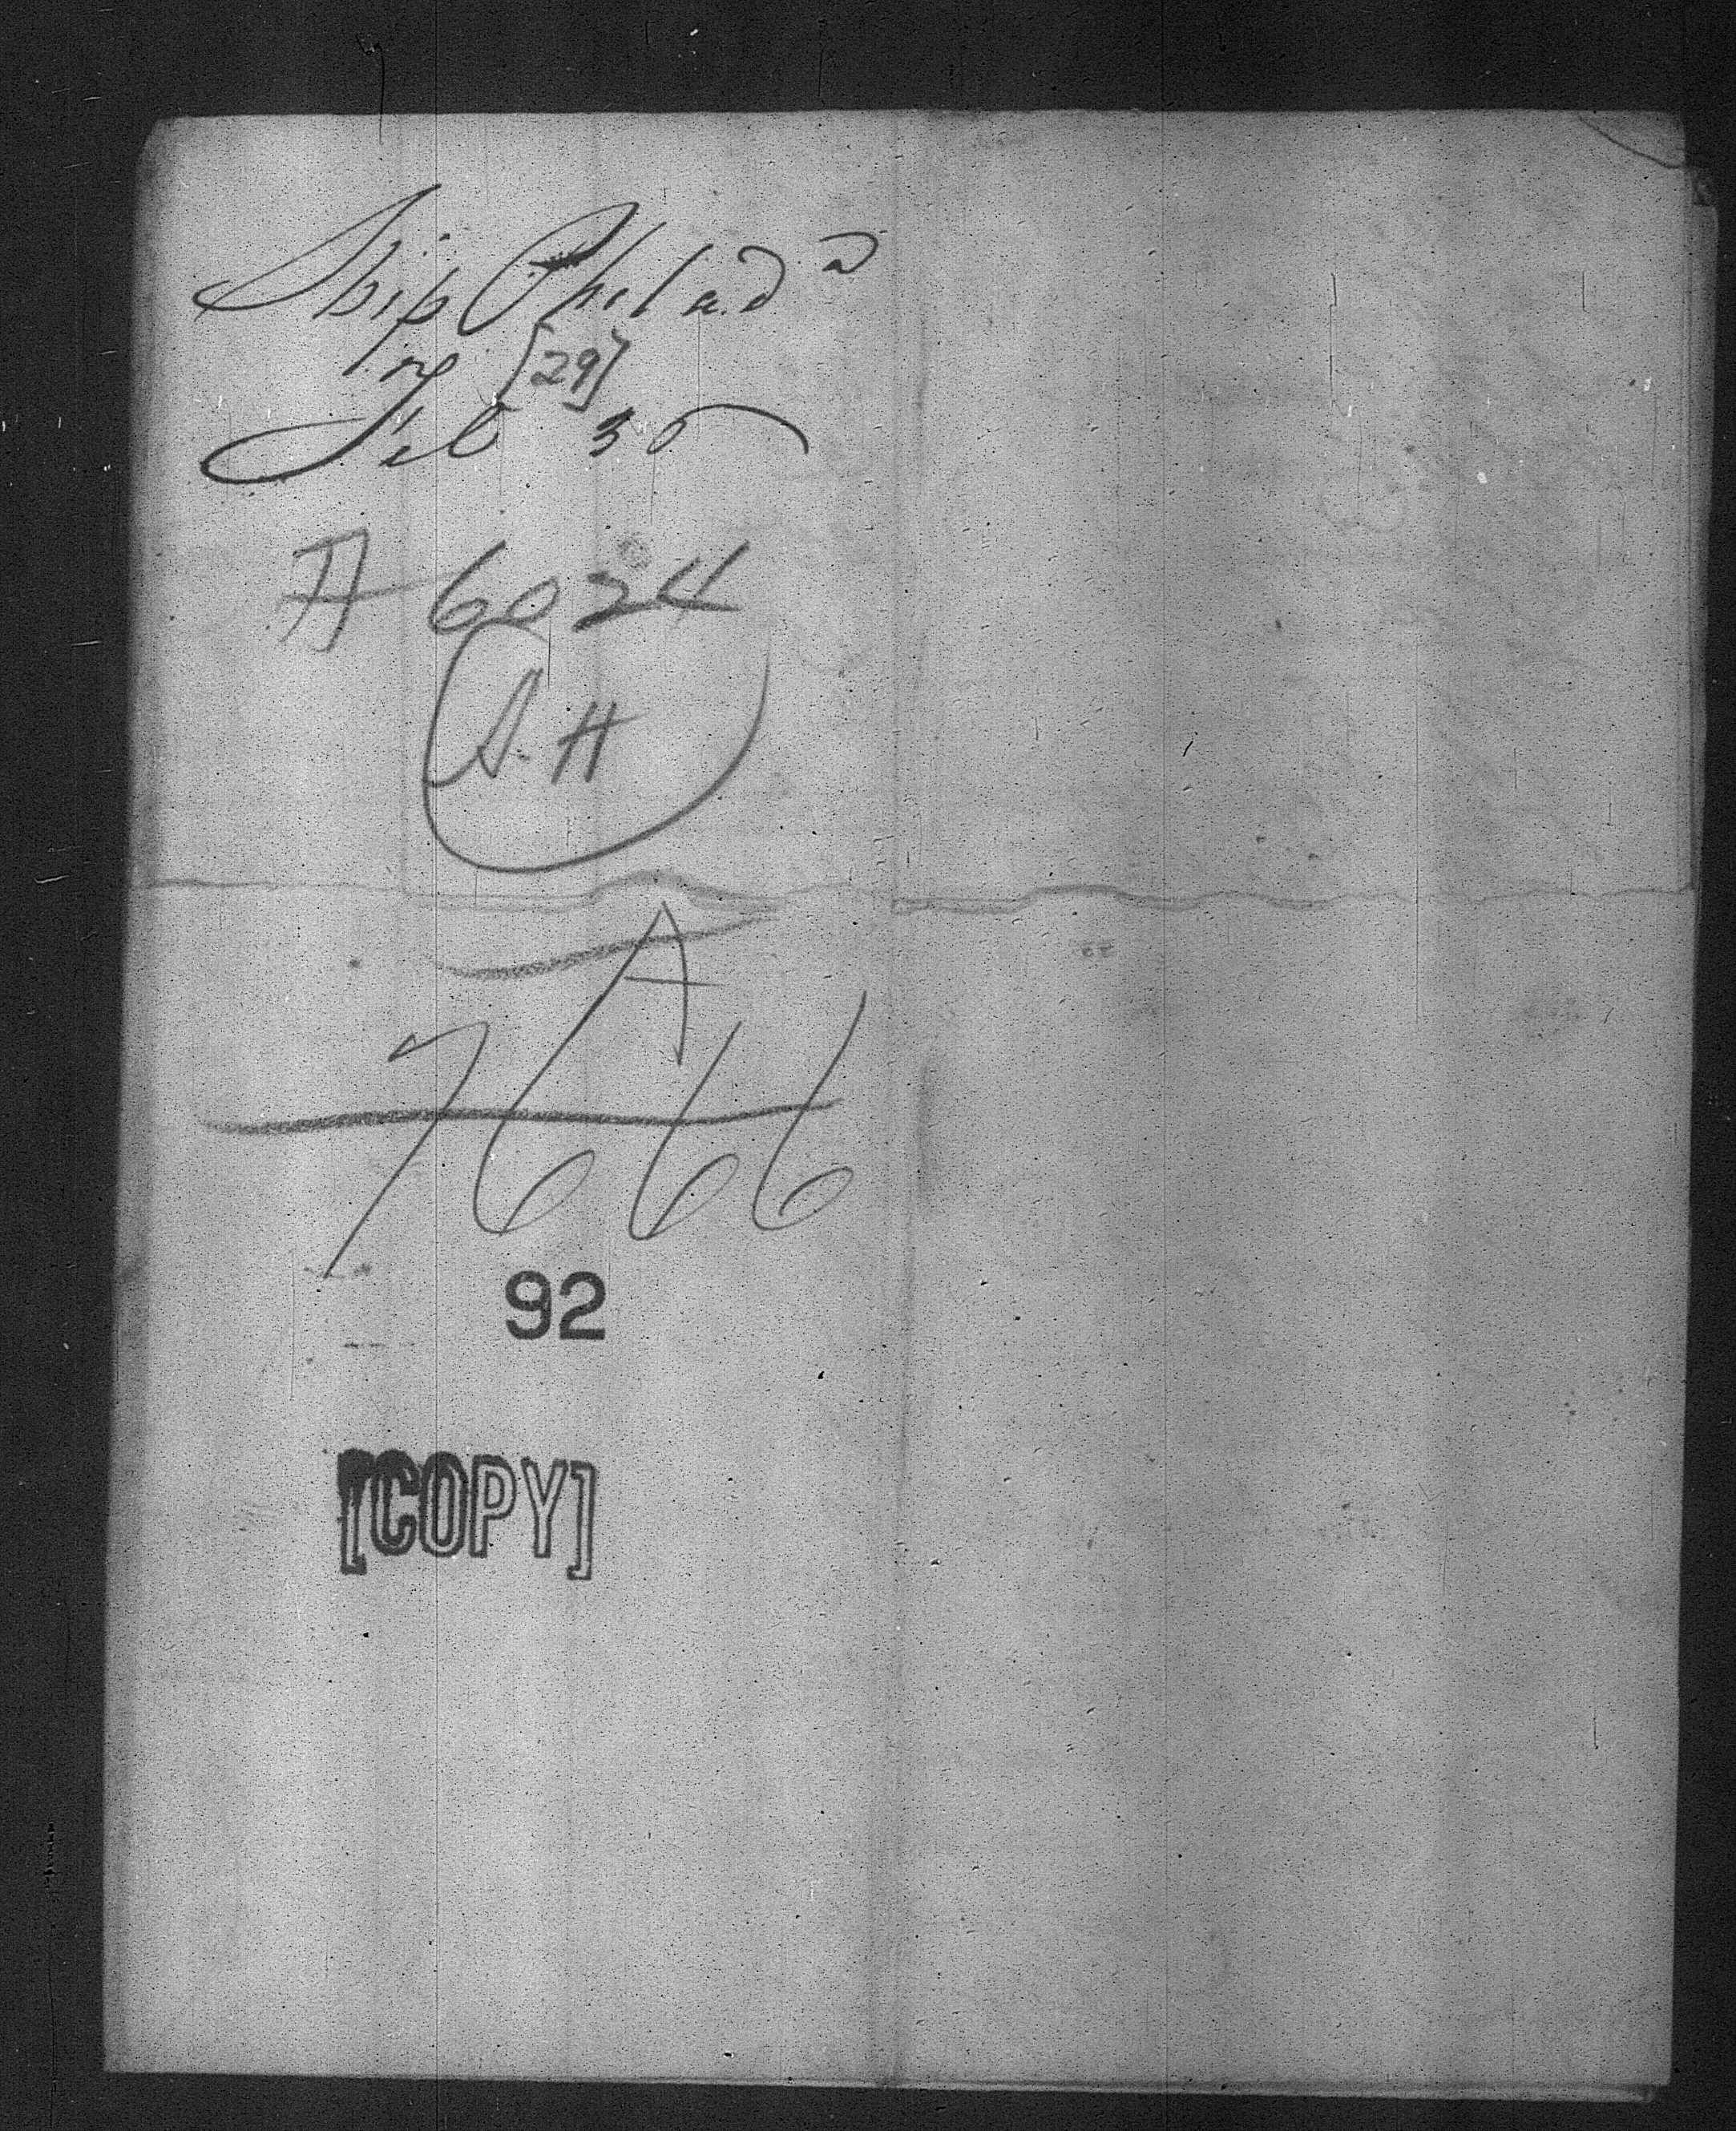 Ship Philad a
[29]
Feb 30
A 6024
A. H
A
7666
92
[COPY]